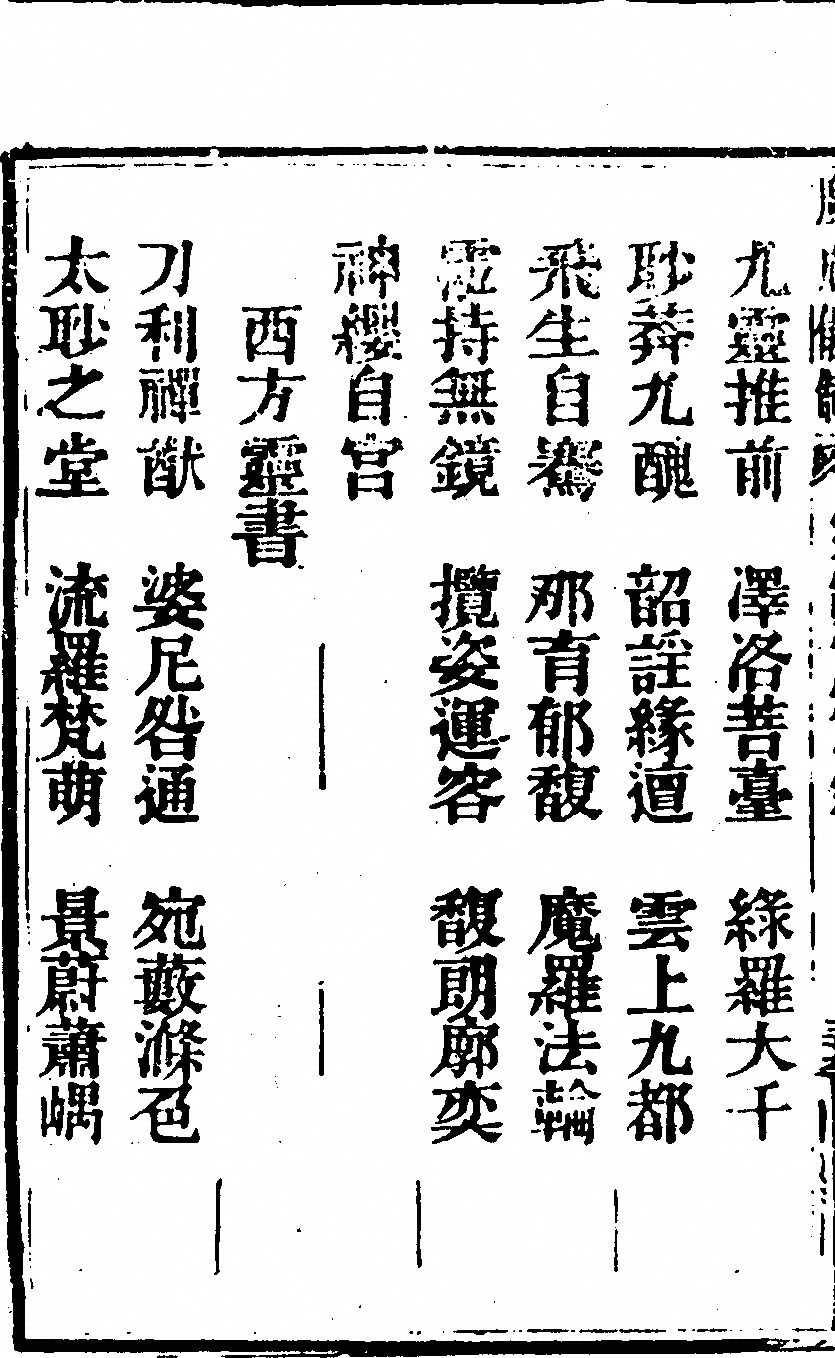 九靈推前　澤洛菩臺　綠羅大千
眇莽九醜　韶謡緣邅　雲上九都
飛生自騫　那育郁馥　魔羅法輪
霐持無鏡　攬姿運容　馥朗廓奕
神纓自宮
西方靈書
刀利禪猷　婆尼咎通　宛藪滌色
太眇之堂　流羅梵萌　景蔚蕭嵎